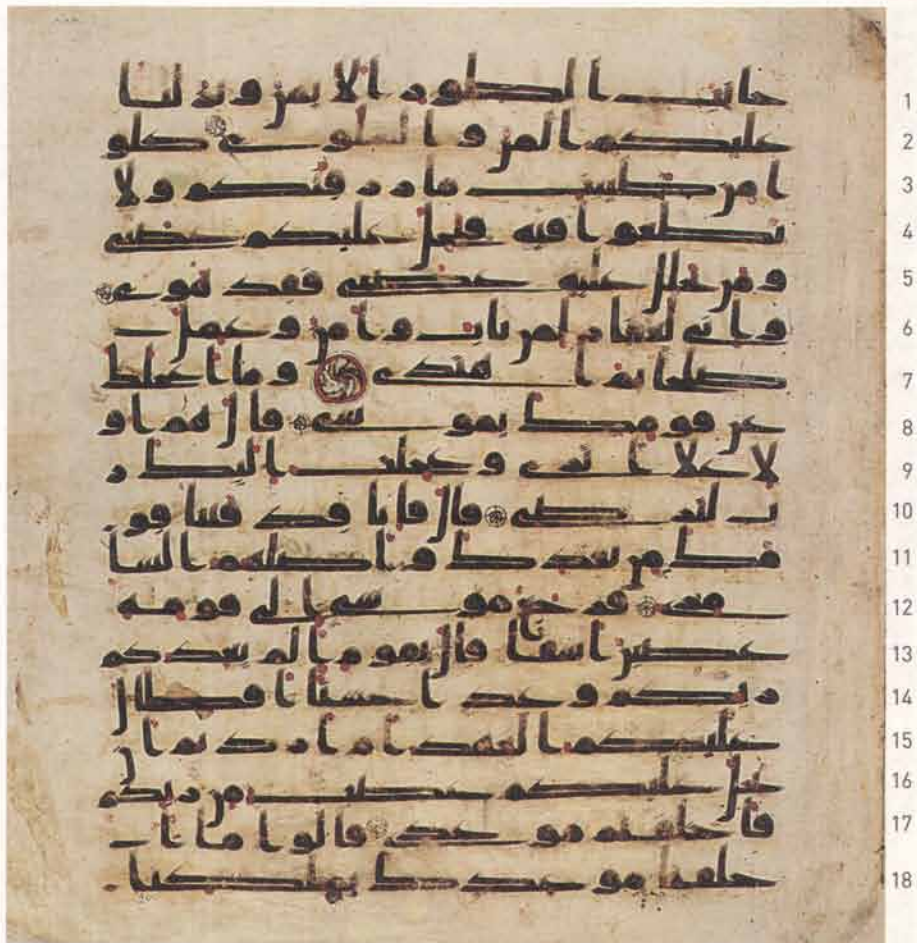 1 جانب الطور الايمن ونزلنا
2 عليكم المن والسلوى كلو
3 ا من طيبت ما رزقنكم ولا
4 تطغوا فيه فيحل عليكم غضبي
5 ومن يحلل عليه غضبي فقد هوى
6 واني لغفار لمن تاب وامن وعمل
7 صلحا ثم اهتدى وما اعجلك
8 عن قومك يموسى قال هم او
9 لا على اثري وعجلت اليك ر
10 ب لترضى قال فانا قد فتنا قو
11 مك من بعدك واضلهم السا
12 مري فرجع موسى الى قومه
13 غضبن اسفا قال يقوم الم يعدكم
14 ربكم وعدا حسنا افطال
15 عليكم العهد ام اردتم ان
16 يحل عليكم غضب من ربكم
17 فاخلفتم موعدي قالوا ما ا
18 خلفنا موعدك بملكنا